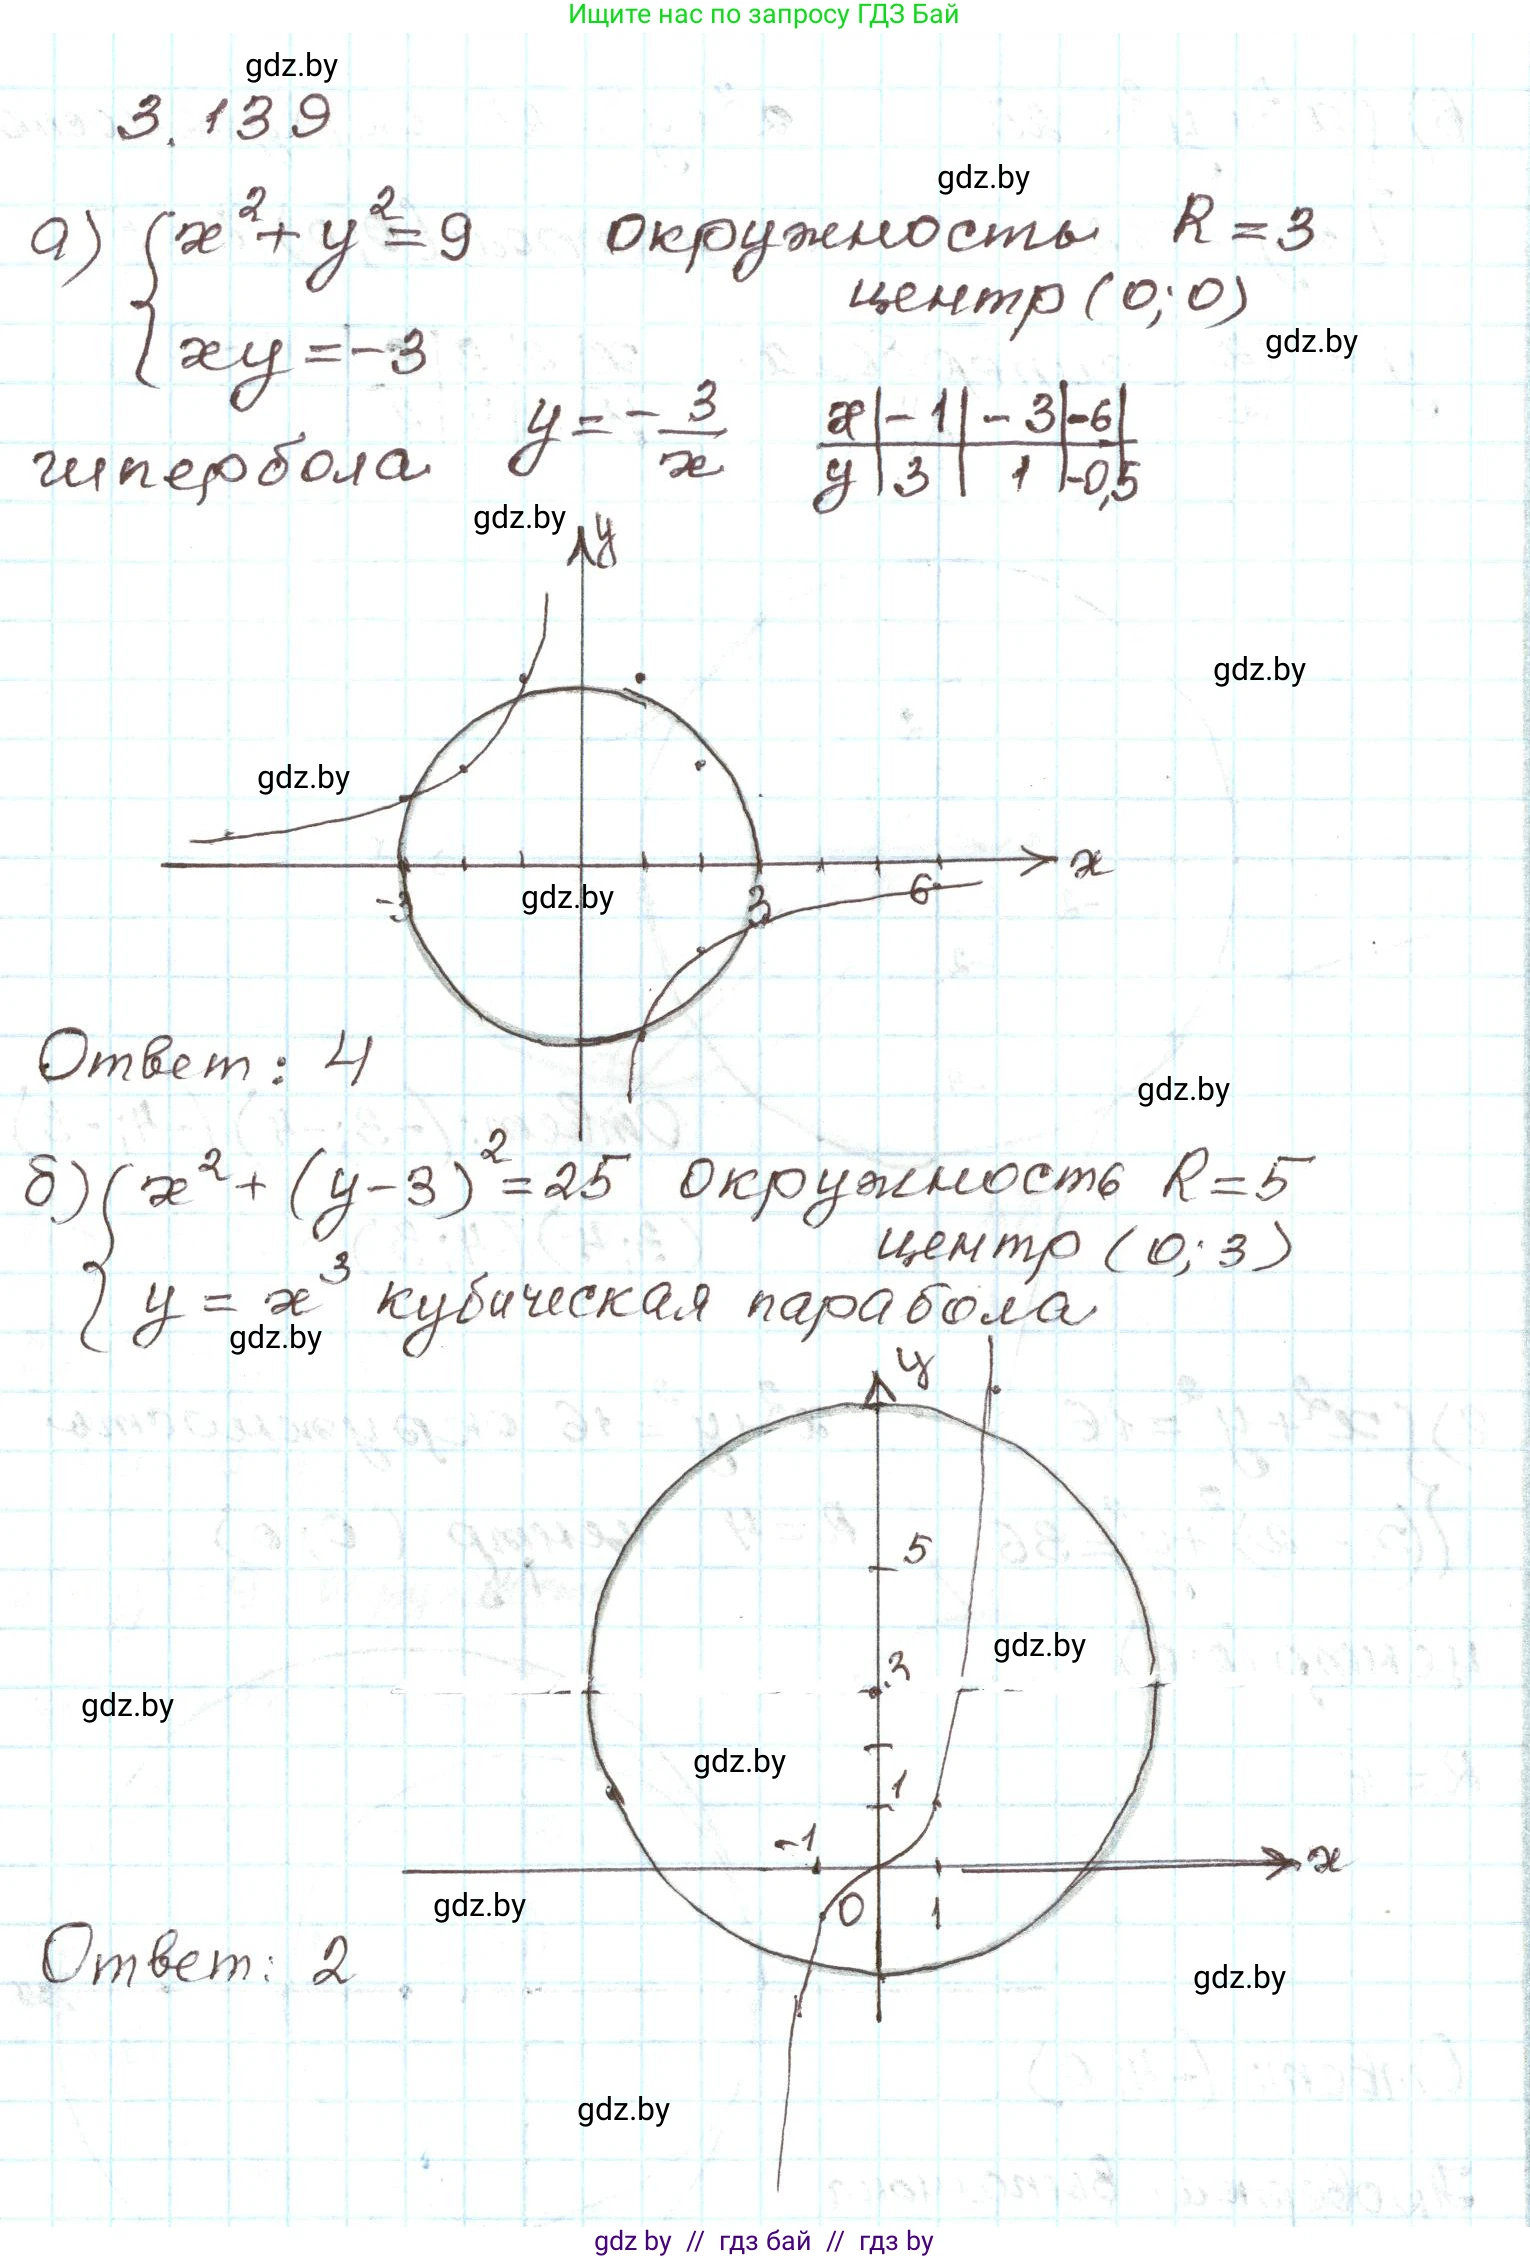 Ищите нас по запросу ГДЗ Бай
gdz.by
3.139
gdz.by
а) { x² + y² = 9 окружность R = 3
центр (0; 0)
xy = -3
gdz.by
гипербола y = - 3/x
x | -1 | -3 | -6 |
y | 3 | 1 | -0,5
gdz.by
y
gdz.by
gdz.by
x
-3
gdz.by
3
6
Ответ: 4
gdz.by
б) { x² + (y-3)² = 25 окружность R = 5
центр (0; 3)
y = x³ кубическая парабола
gdz.by
y
5
gdz.by
3
gdz.by
gdz.by
1
-1
x
gdz.by
0
1
Ответ: 2
gdz.by
gdz.by
gdz by // гдз бай // гдз by